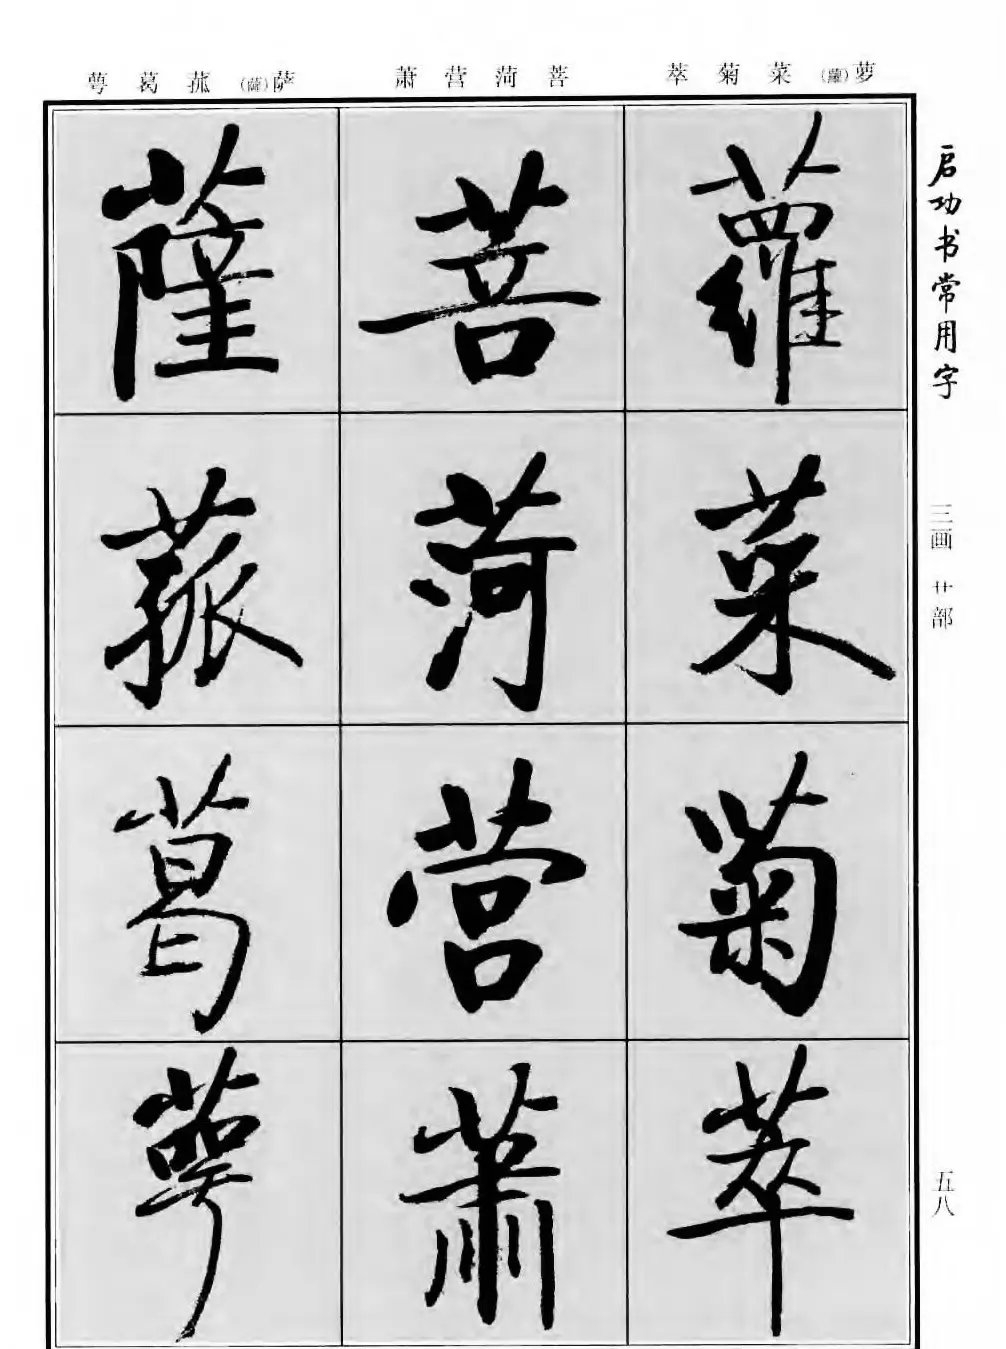 启功书常用字
三画 艹部
五八
萝(蘿) 菜 菊 萃
菩 菏 营 萧
萨(薩) 菰 葛 萼
蘿
菜
菊
萃
菩
菏
营
蕭
薩
菰
葛
萼